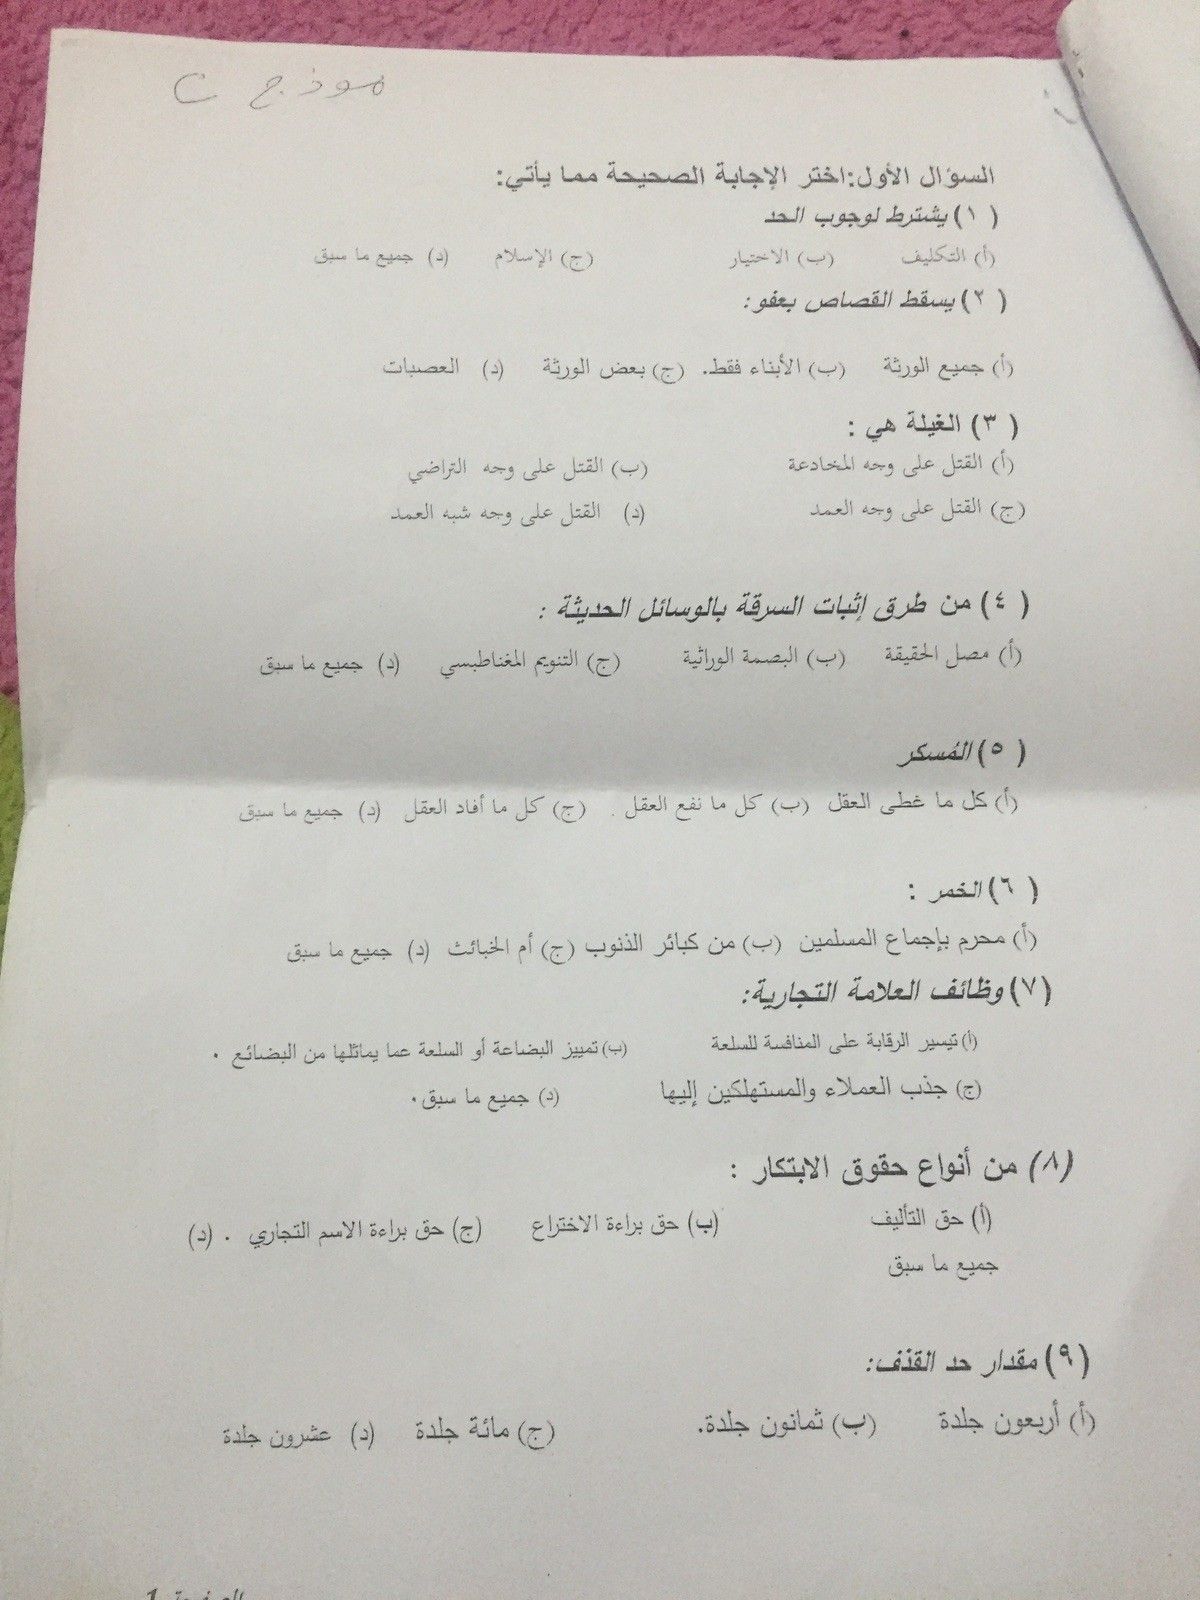 موذج ت
السؤال الأول:اختر الإجابة الصحيحة مما يأتي:
( ١) يشترط لوجوب الحد
(أ) التكليف (ب) الاختيار (ج) الإسلام (د) جميع ما سبق
( ٢) يسقط القصاص بعفو:
(أ) جميع الورثة (ب) الأبناء فقط. (ج) بعض الورثة (د) العصبات
( ٣) الغيلة هي :
(أ) القتل على وجه المخادعة (ب) القتل على وجه التراضي
(ج) القتل على وجه العمد (د) القتل على وجه شبه العمد
( ٤) من طرق إثبات السرقة بالوسائل الحديثة :
(أ) مصل الحقيقة (ب) البصمة الوراثية (ج) التنويم المغناطيسي (د) جميع ما سبق
( ٥) المُسكر
(أ) كل ما غطى العقل (ب) كل ما نفع العقل . (ج) كل ما أفاد العقل (د) جميع ما سبق
( ٦) الخمر :
(أ) محرم بإجماع المسلمين (ب) من كبائر الذنوب (ج) أم الخبائث (د) جميع ما سبق
(٧) وظائف العلامة التجارية:
(أ) تيسير الرقابة على المنافسة للسلعة (ب) تمييز البضاعة أو السلعة عما يماثلها من البضائع .
(ج) جذب العملاء والمستهلكين إليها (د) جميع ما سبق.
(٨) من أنواع حقوق الابتكار :
(أ) حق التأليف (ب) حق براءة الاختراع (ج) حق براءة الاسم التجاري . (د)
جميع ما سبق
(٩) مقدار حد القذف:
(أ) أربعون جلدة (ب) ثمانون جلدة. (ج) مائة جلدة (د) عشرون جلدة
الصفحة 1